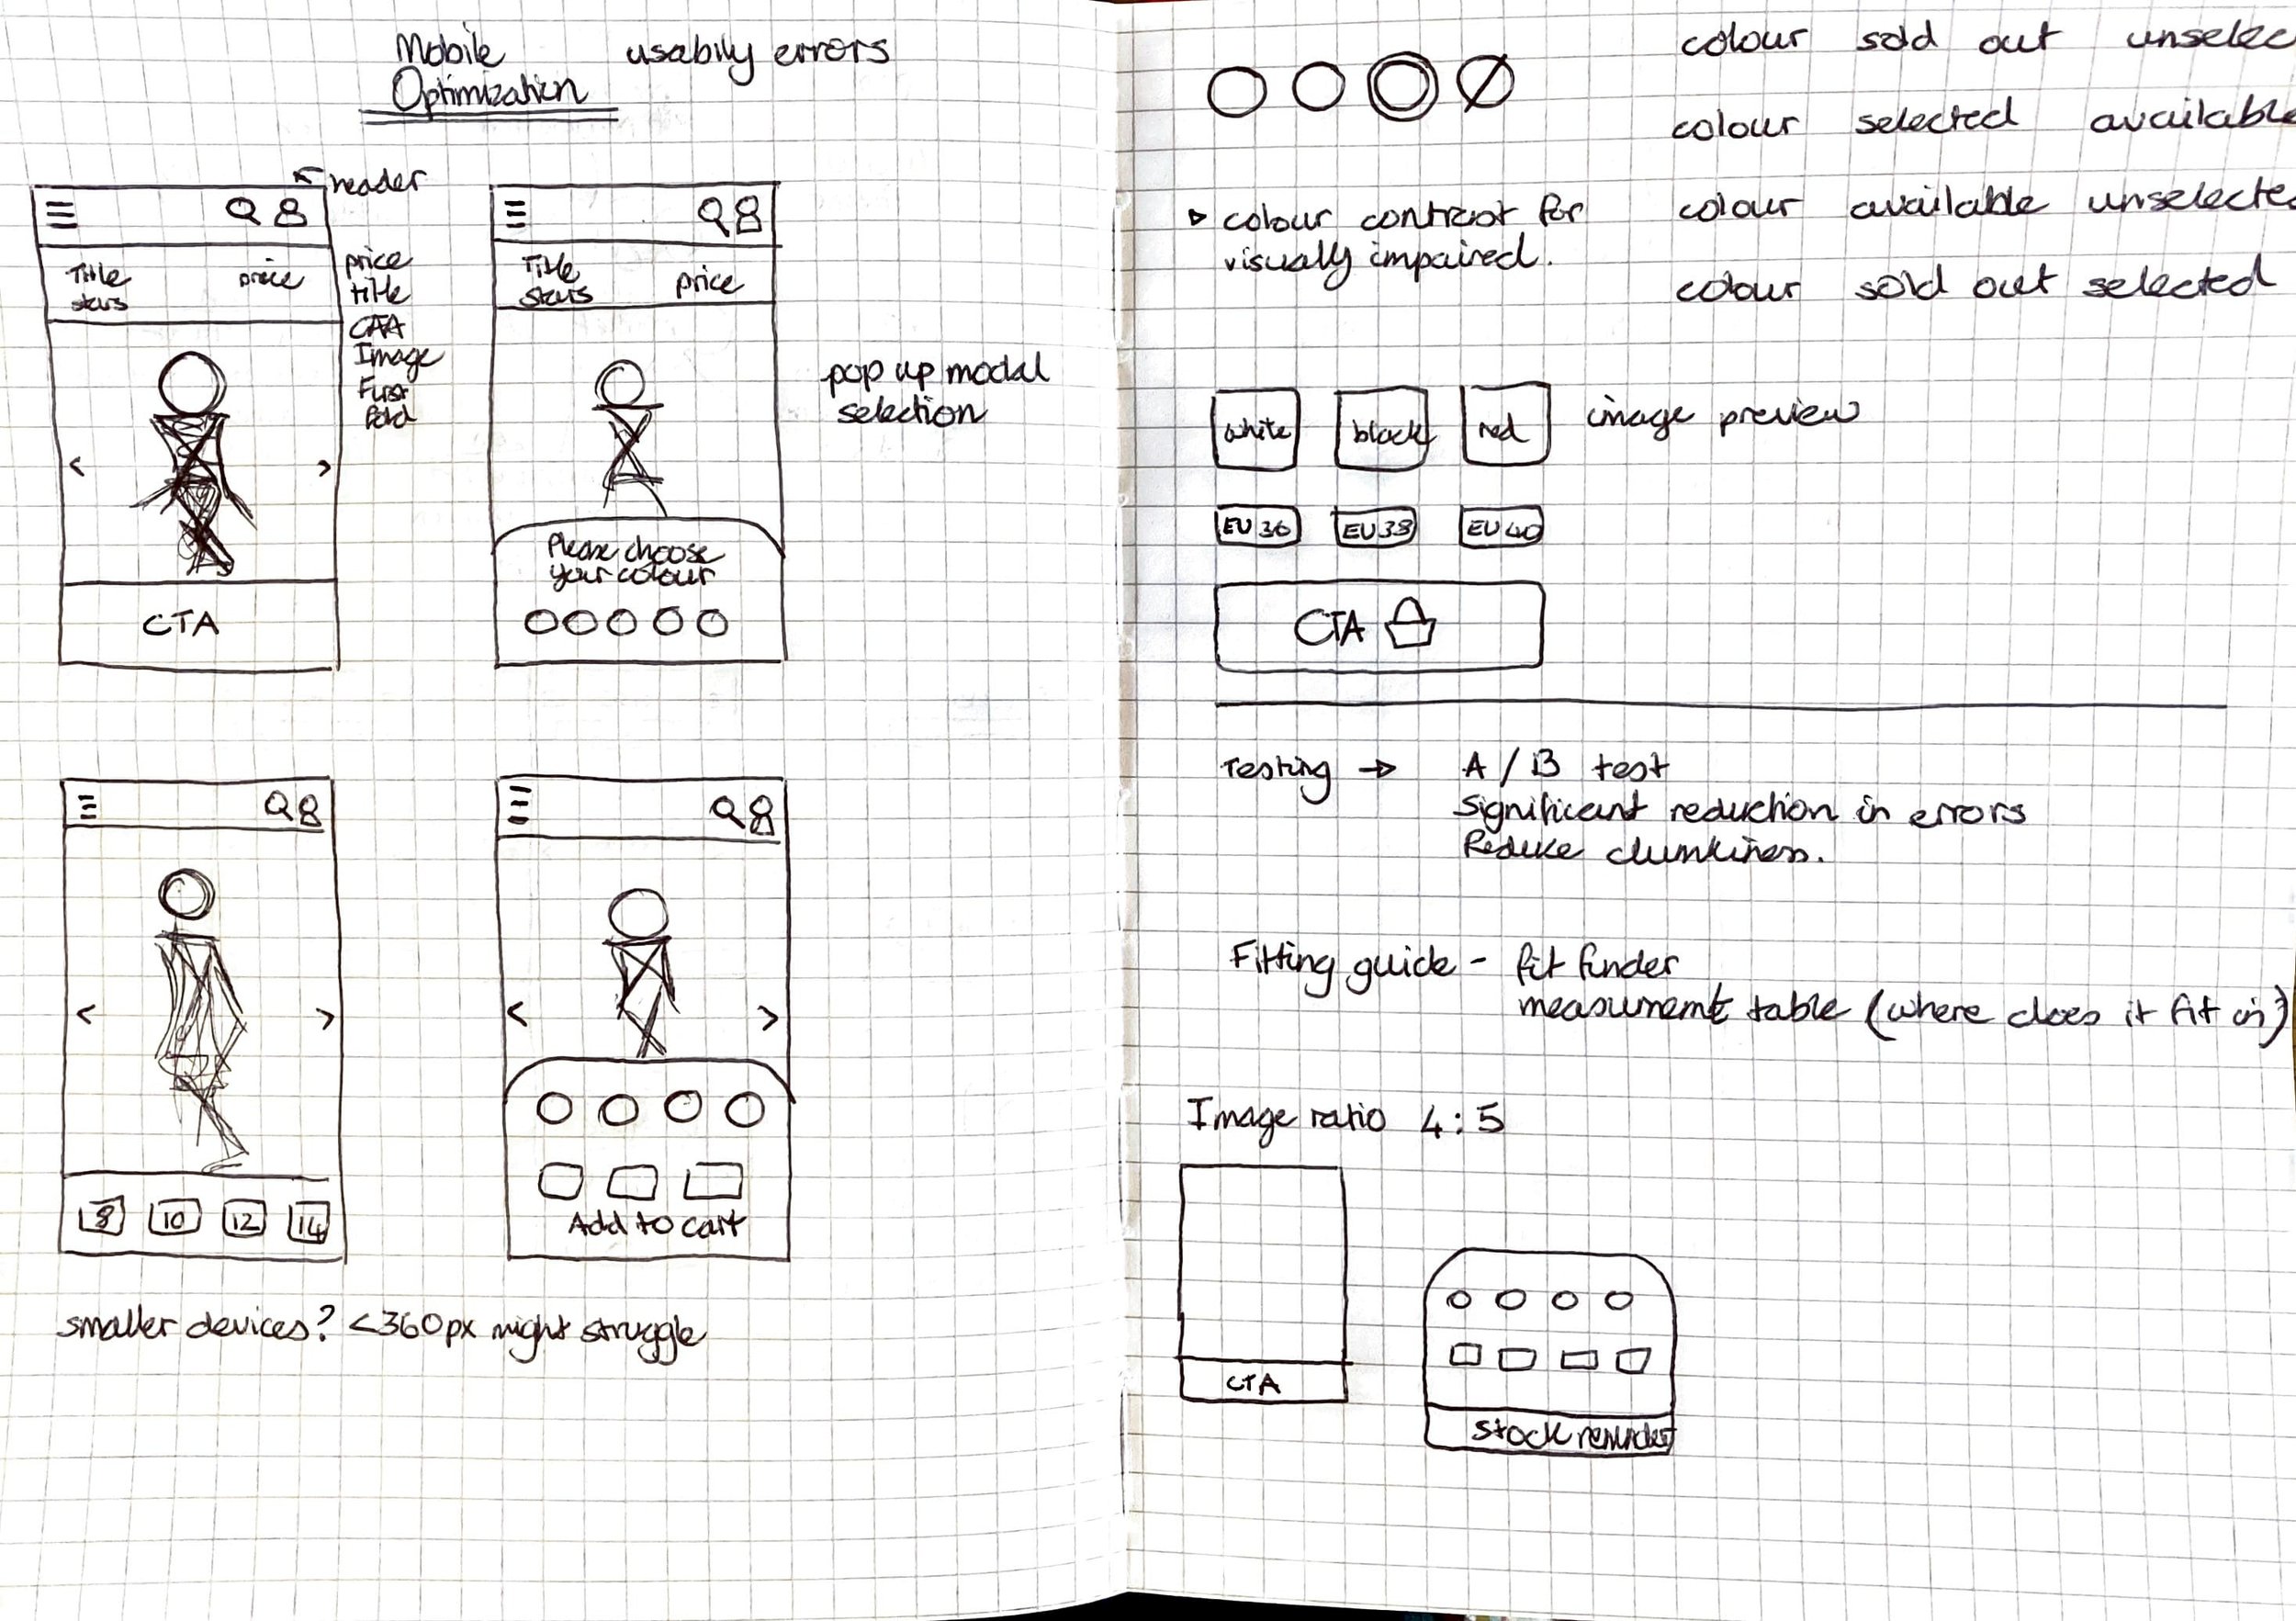 Mobile usabily errors
Optimization
header
Title price
stars
price
title
CTA
Image
First
Fold
CTA
Title price
stars
Please choose
your colour
pop up modal
selection
8 10 12 14
Add to cart
smaller devices? <360px might struggle
colour sold out unselec
colour selected available
colour available unselecte
colour sold out selected
colour contrast for
visually impaired.
white black red image preview
EU 36 EU 38 EU 40
CTA
Testing → A / B test
Significant reduction in errors
Reduce clunkiness.
Fitting guide - fit finder
measurement table (where does it fit in)
Image ratio 4:5
CTA
Stock reminder